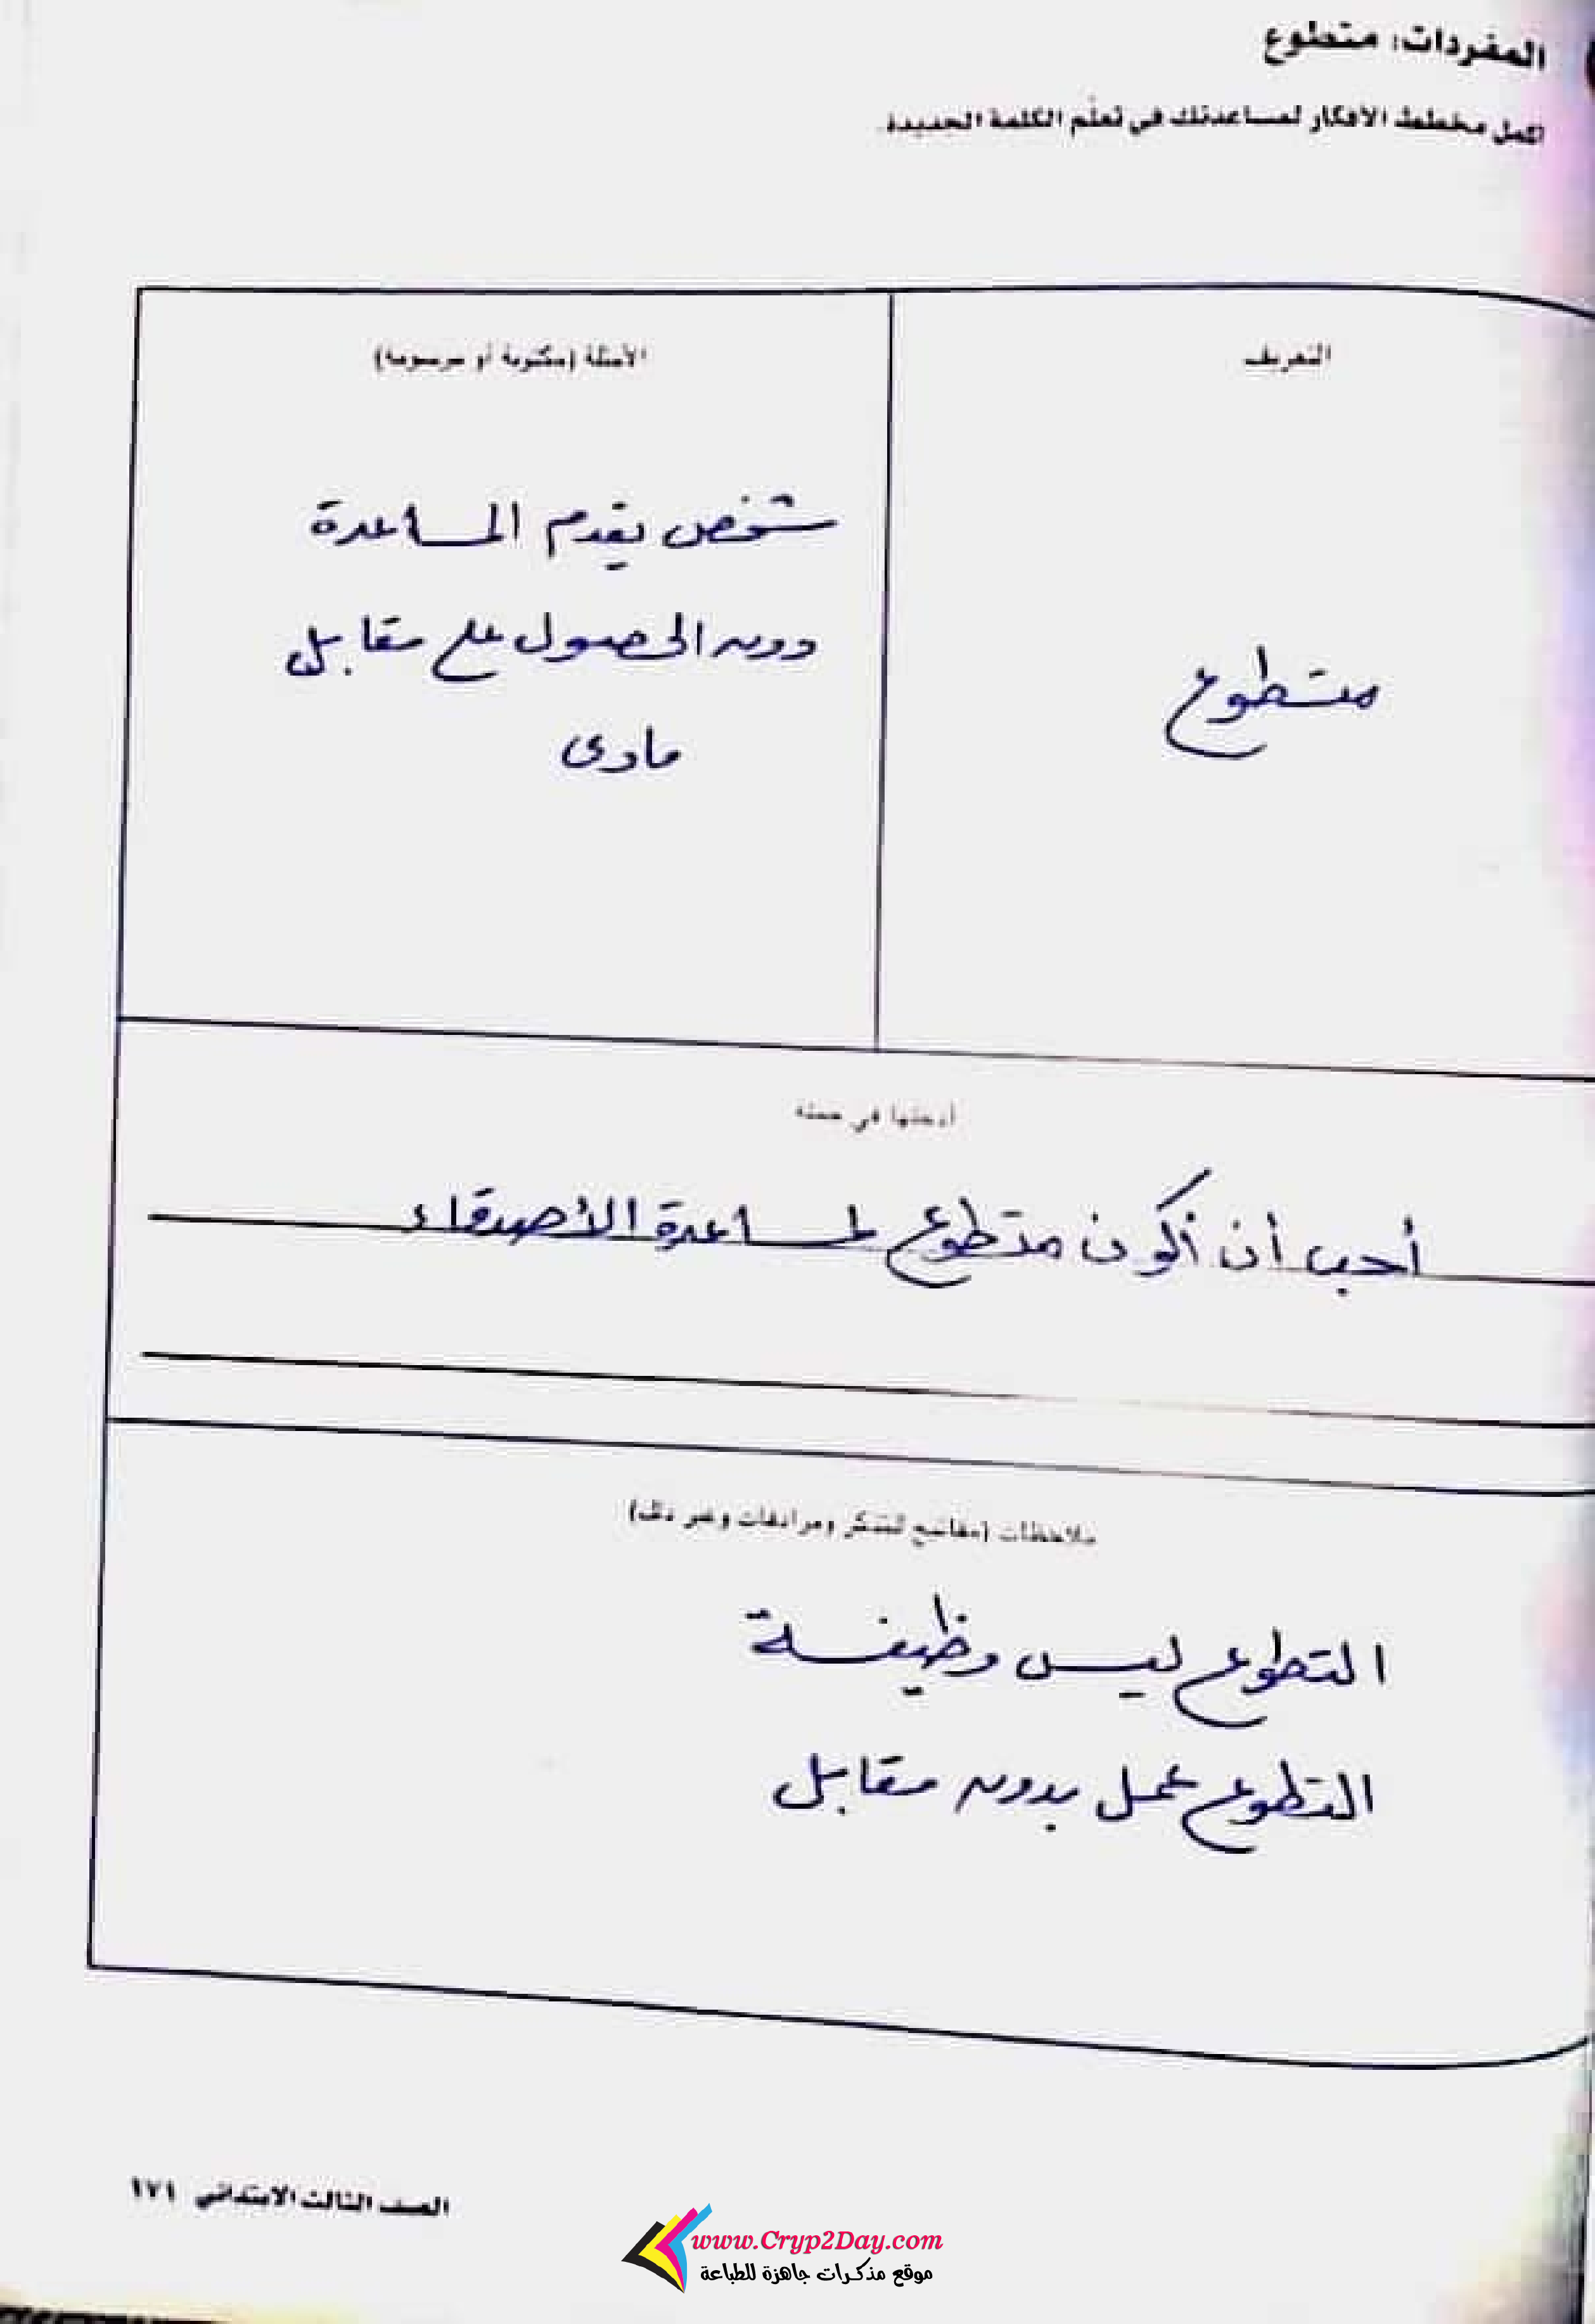 المفردات: متطوع
أكمل مخطط الأفكار لمساعدتك في تعلّم الكلمة الجديدة.
التعريف
الأمثلة (مكتوبة أو مرسومة)
متطوع
شخص يقدم المساعدة
دون الحصول على مقابل
مادى
أدخلها في جملة
أحب أن أكون متطوع لمساعدة الأصدقاء
ملاحظات (مفاتيح للتذكر ومرادفات وغير ذلك)
التطوع ليس وظيفة
التطوع عمل بدون مقابل
الصف الثالث الابتدائي ١٧١
www.Cryp2Day.com
موقع مذكرات جاهزة للطباعة